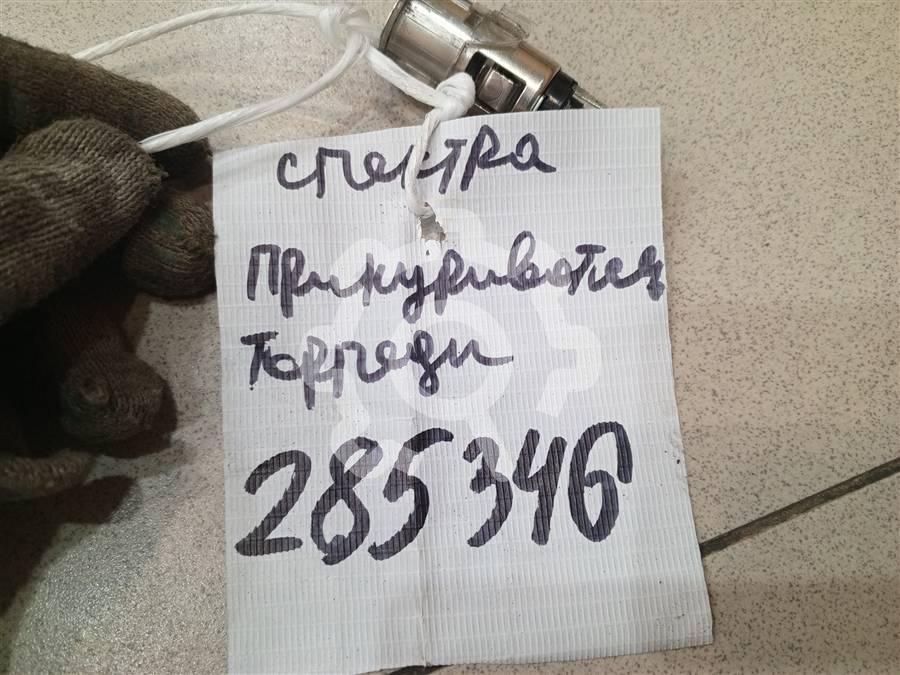 спектра
Прикуриватель
Торпеды
285346